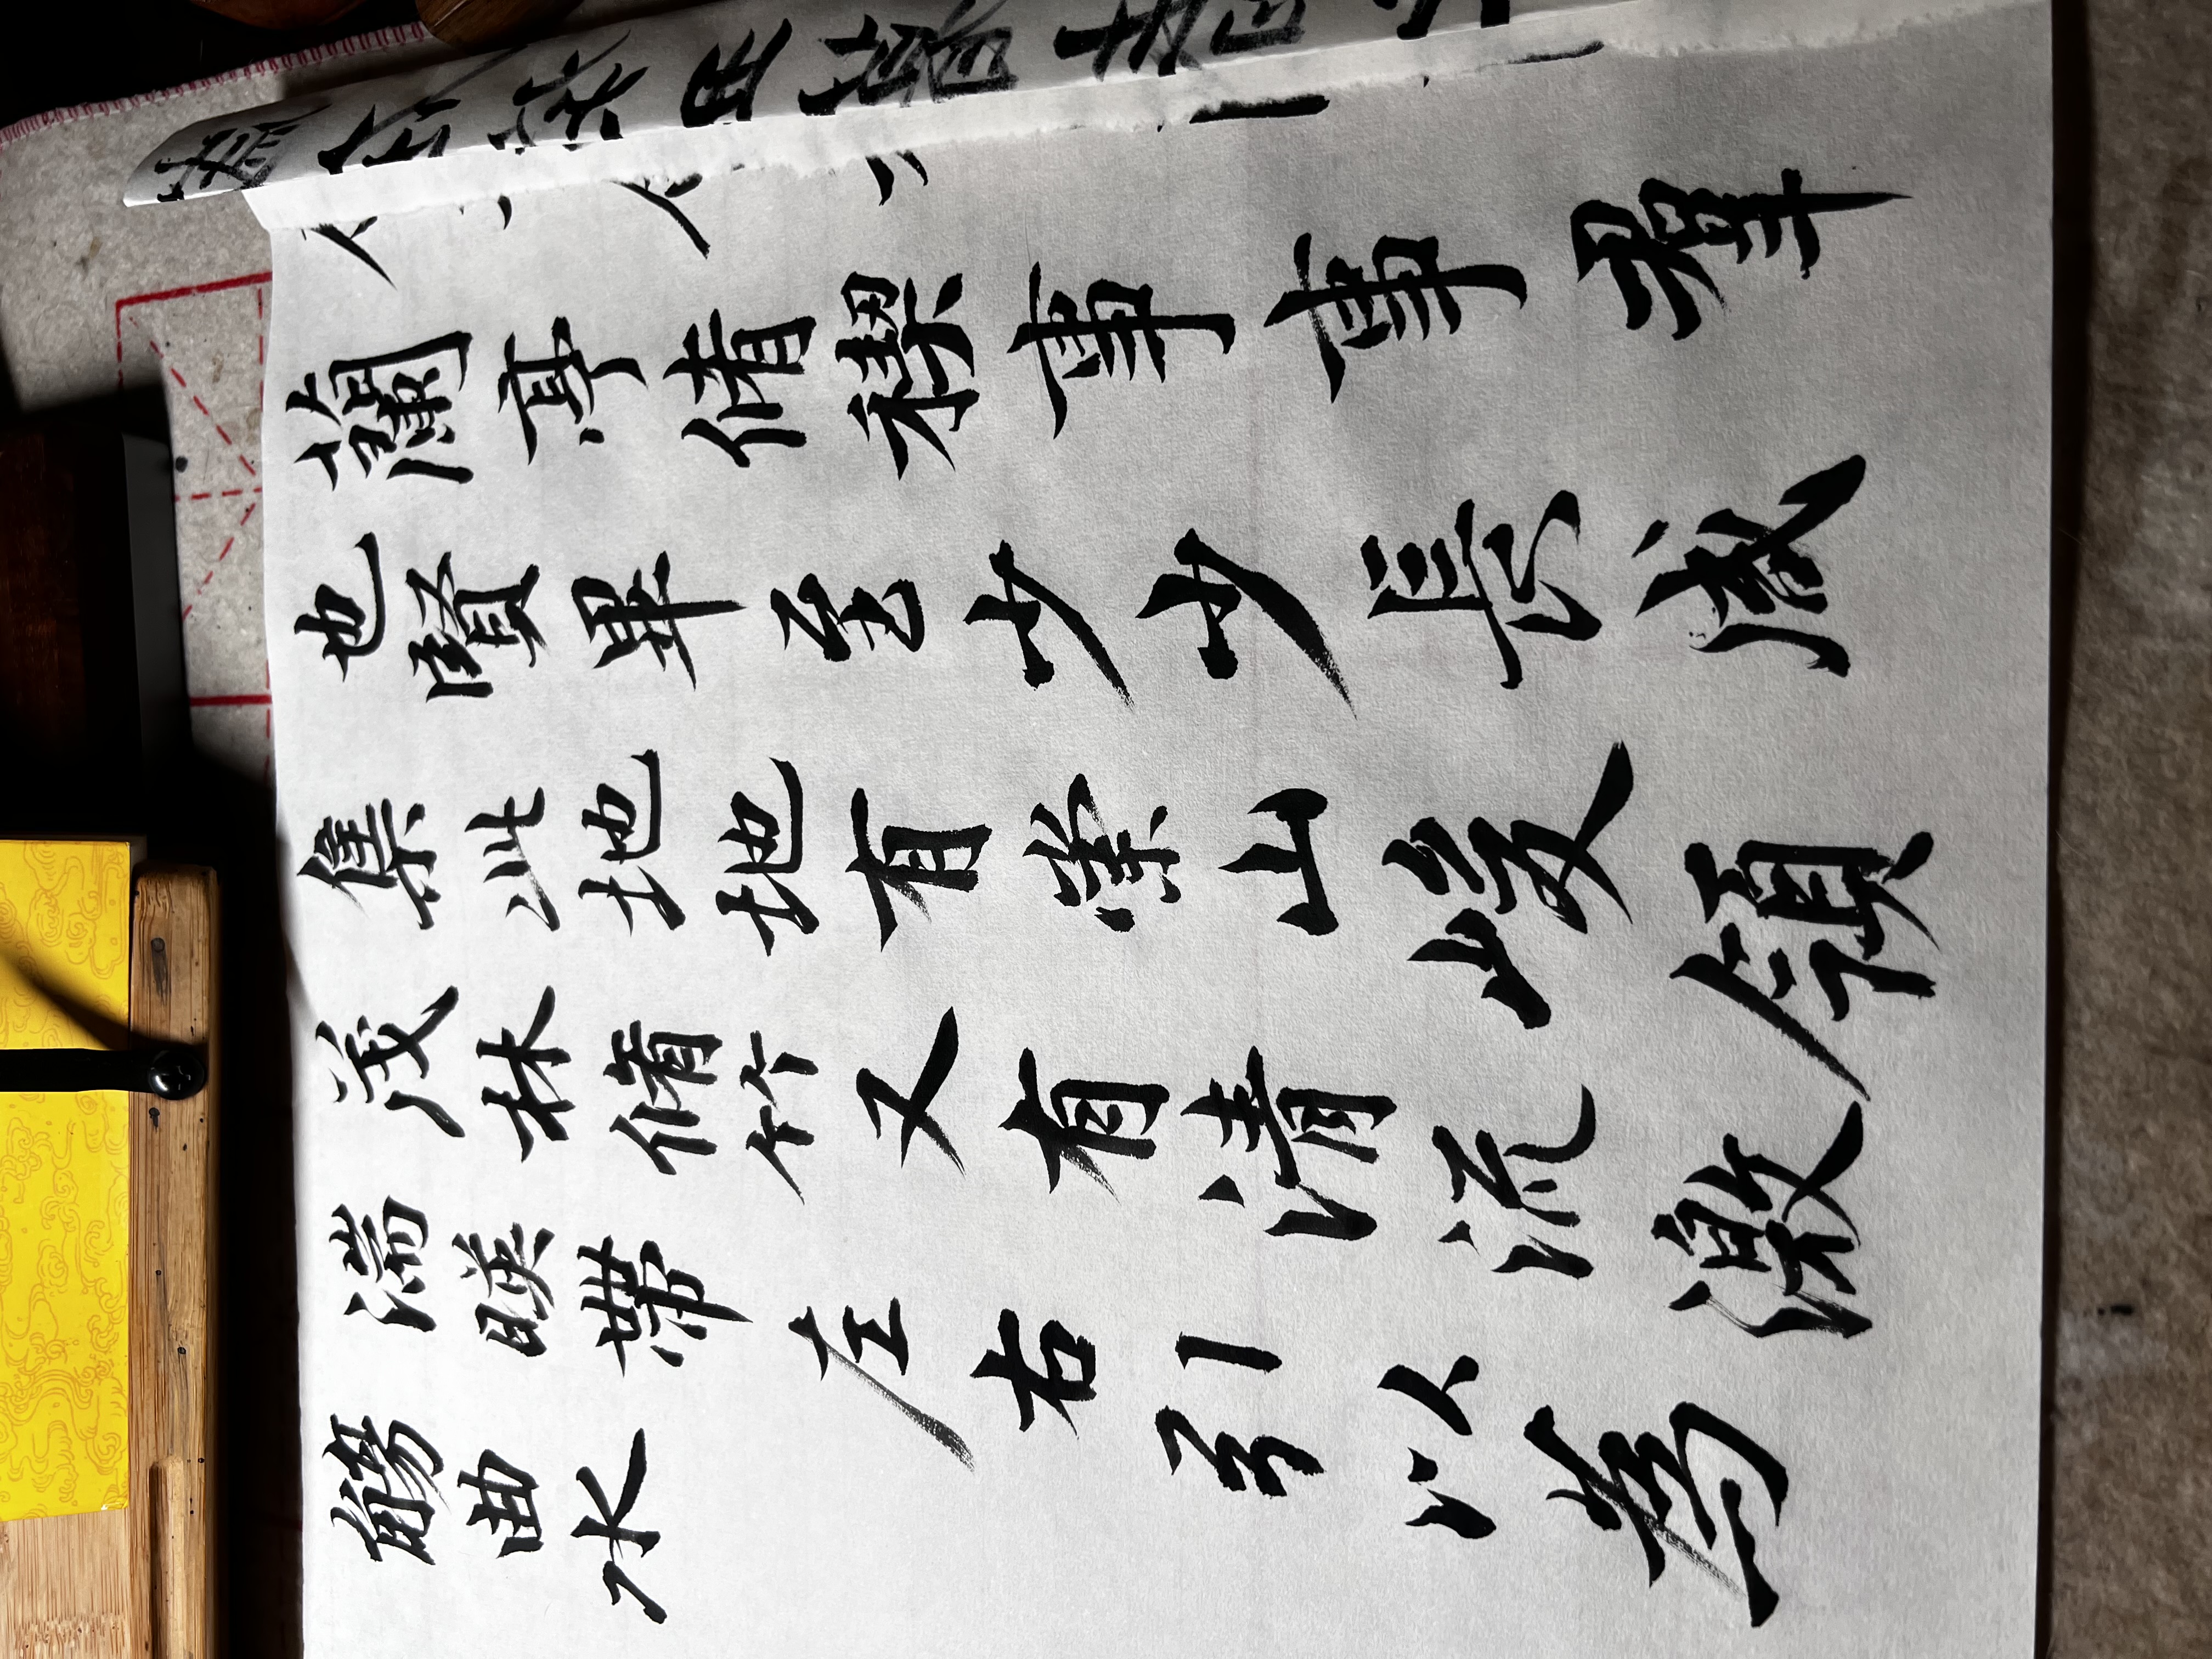 蘭亭脩稧事事羣
也賢畢至少少長咸
集此地地有崇山峻領
茂林脩竹又有清流激
湍暎帶左右引以為
觴曲水